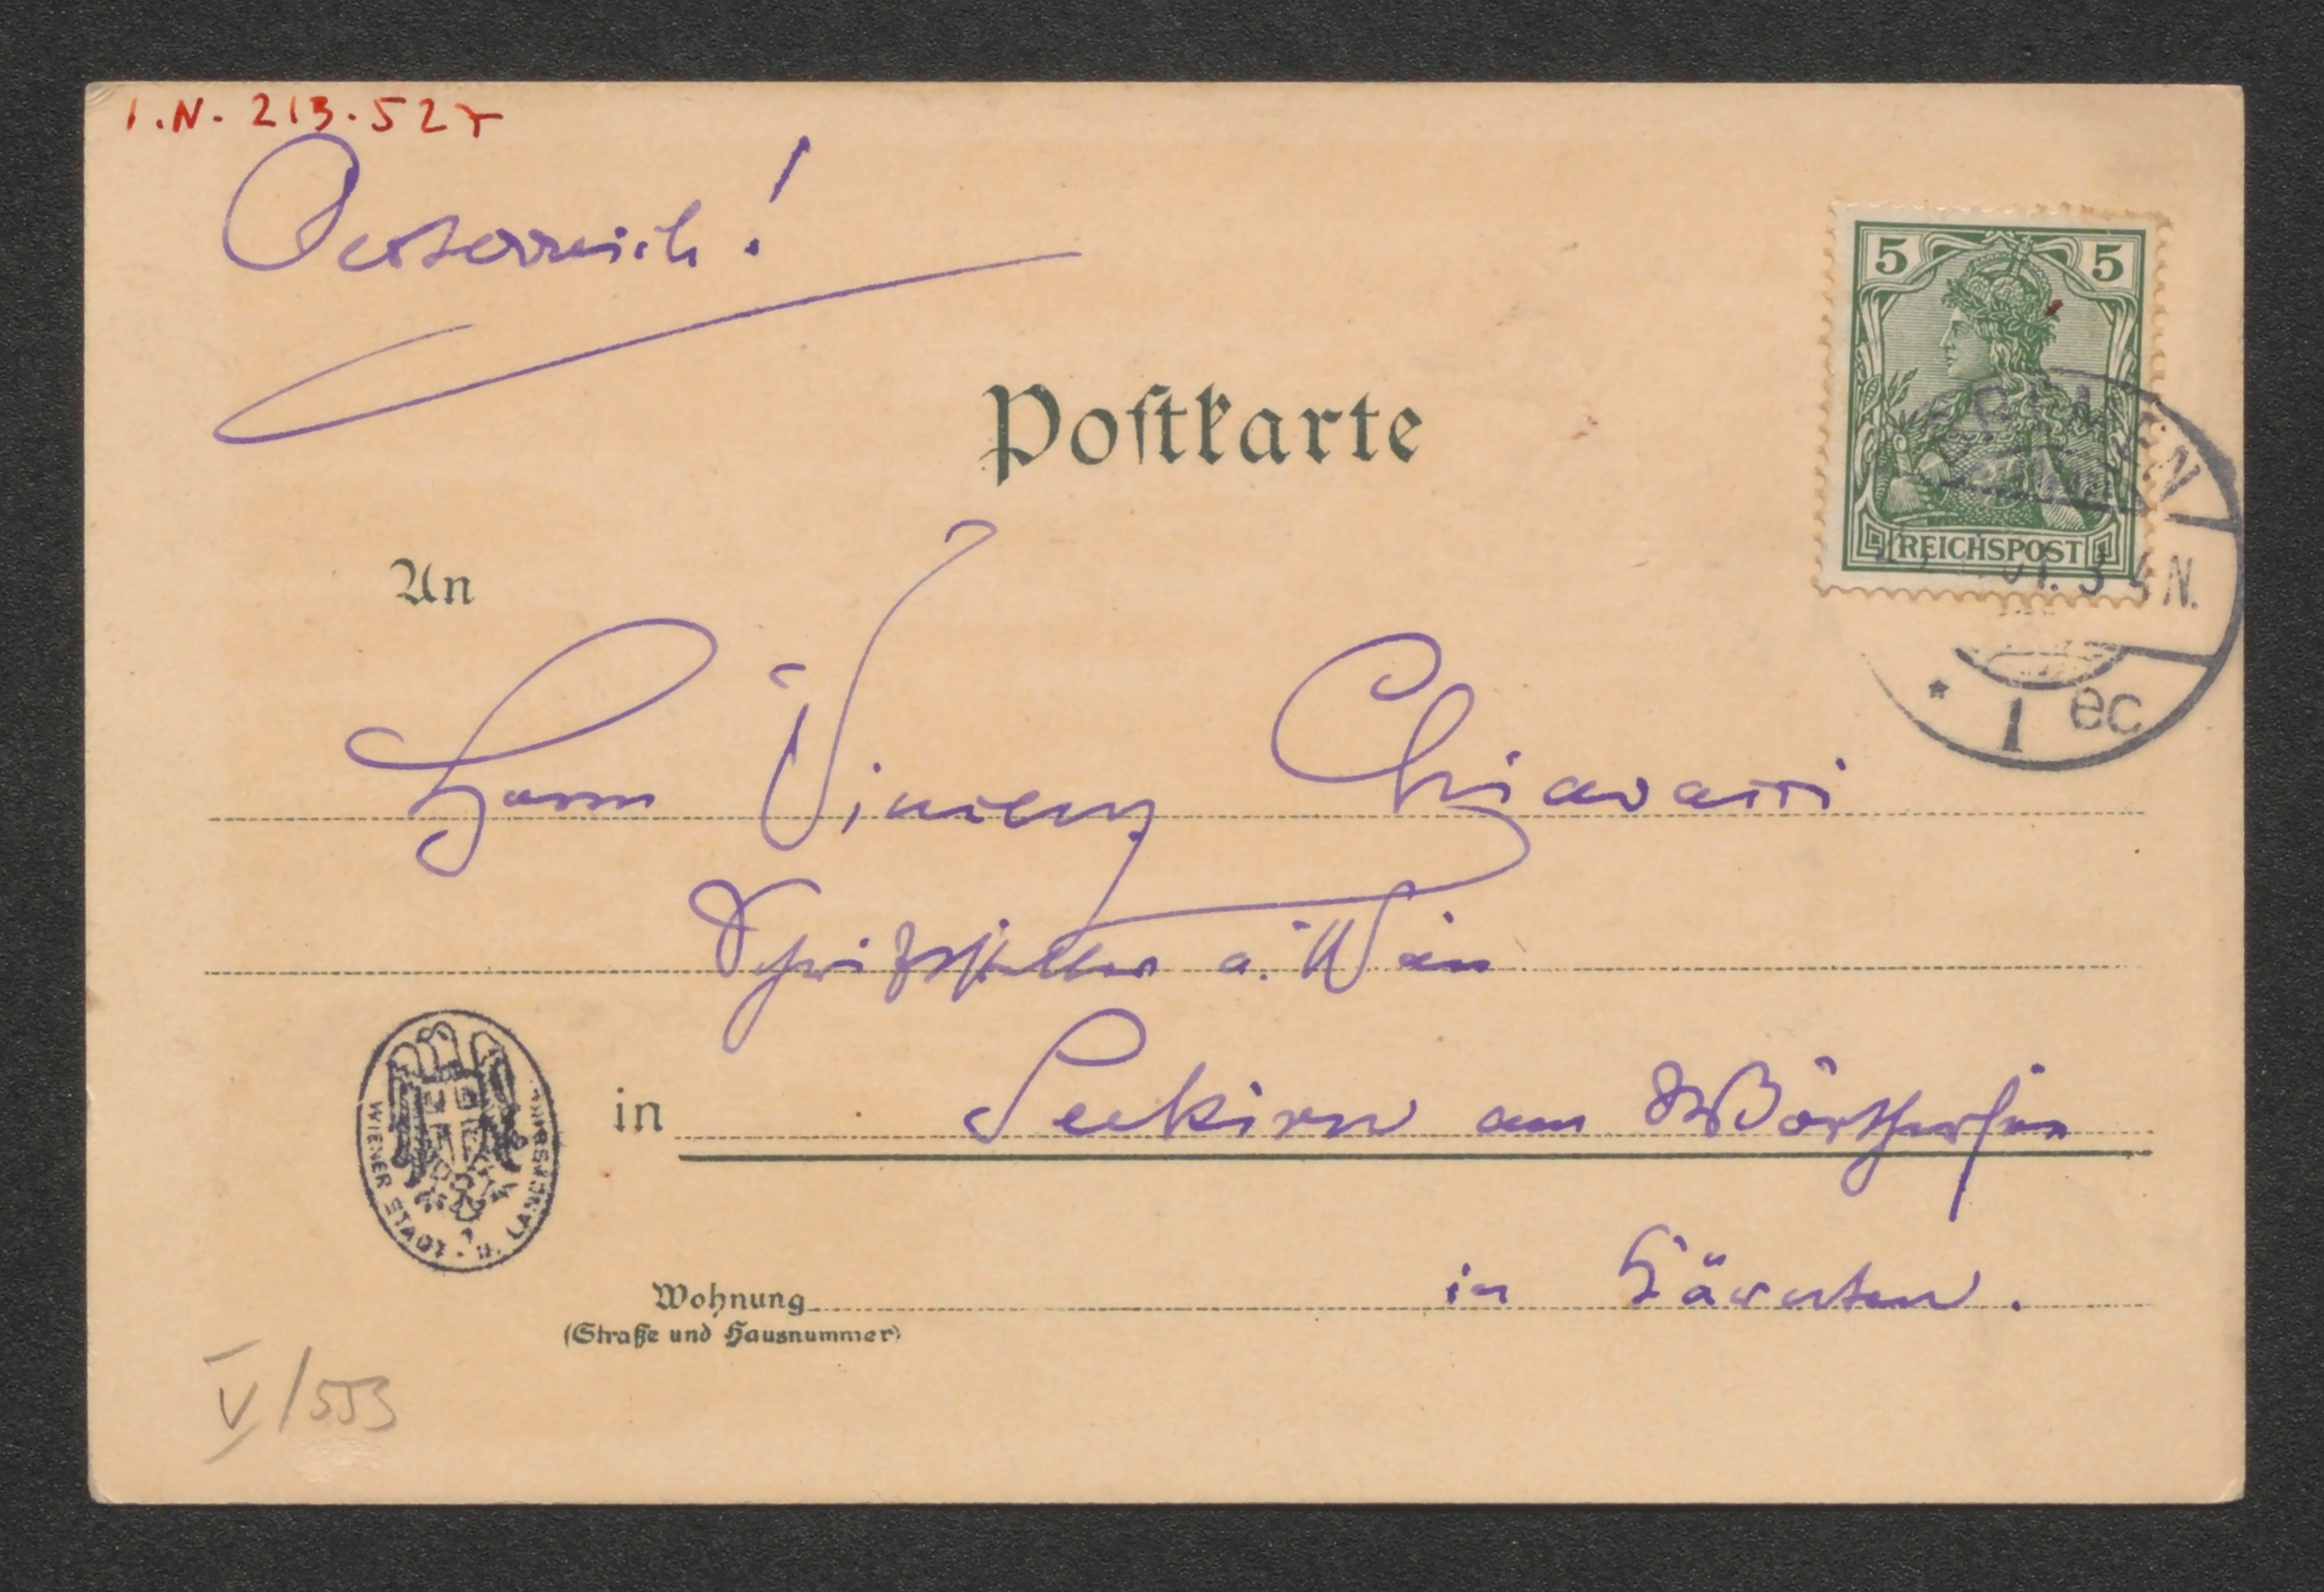 I.N. 213.527
Oesterreich!
5 5
REICHSPOST
Postkarte
An
Herrn Vincenz Chiavacci
Schriftsteller a. Wien
in Seekirn am Wörthersee
in Kärnten.
Wohnung
(Straße und Hausnummer)
WIENER STADT- U. LANDESBIBL.
3-4 N.
* 1 ec
V/553